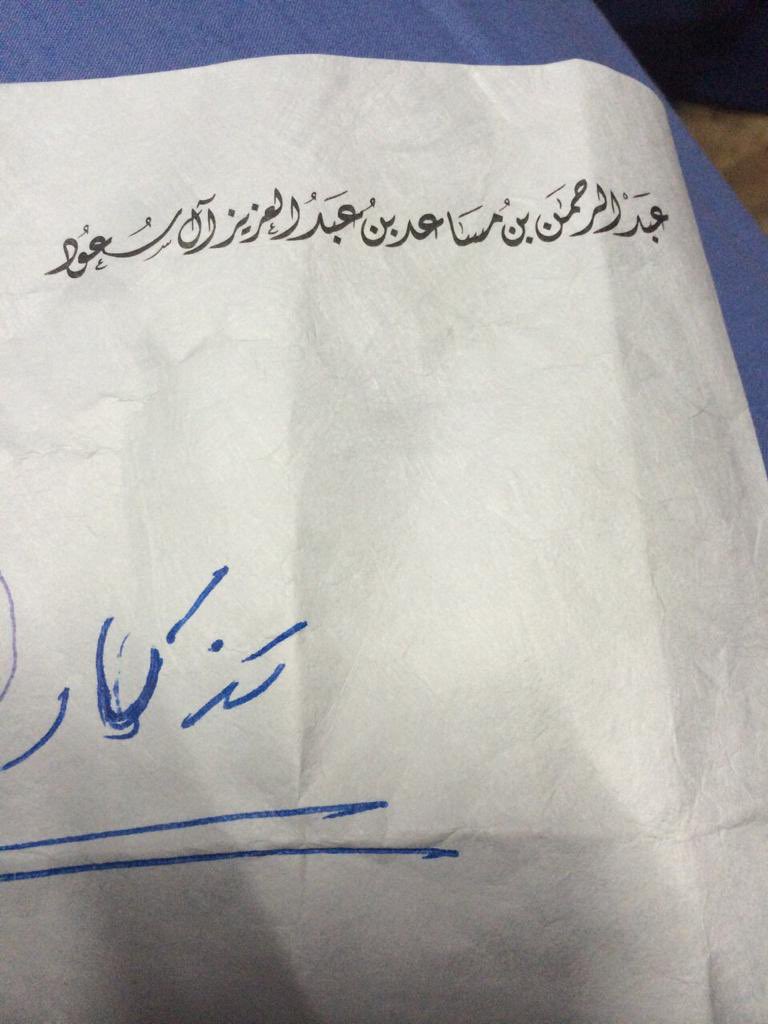 عبد الرحمن بن مساعد بن عبد العزيز آل سعود
تذكار